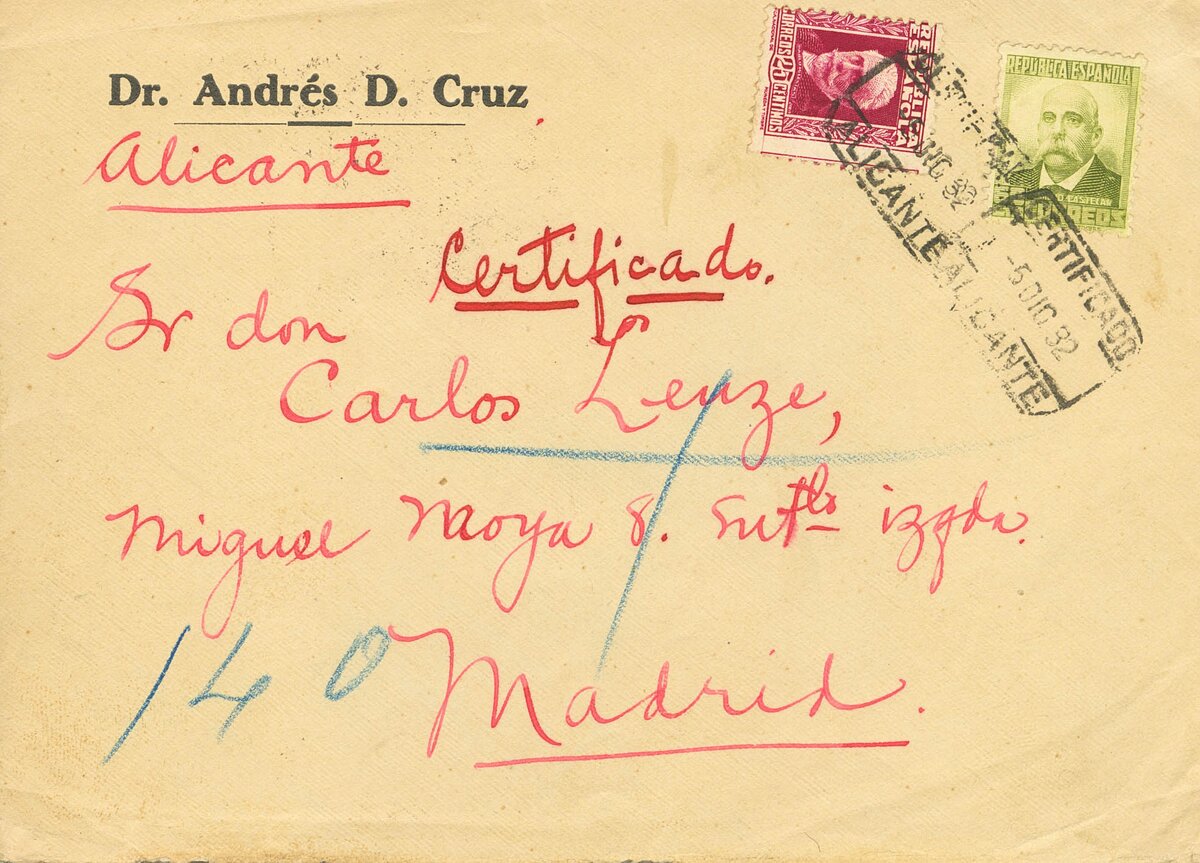 Dr. Andrés D. Cruz
Alicante
Certificado.
Sr don
Carlos Lenze,
Miguel Moya 8. izqda.
Madrid.
140
REPUBLICA ESPAÑOLA
CORREOS 25 CENTIMOS
REPUBLICA ESPAÑOLA
E. CASTELAR
CORREOS
CERTIFICADO
DIC 32
ALICANTE
CERTIFICADO
-5 DIC 32
ALICANTE